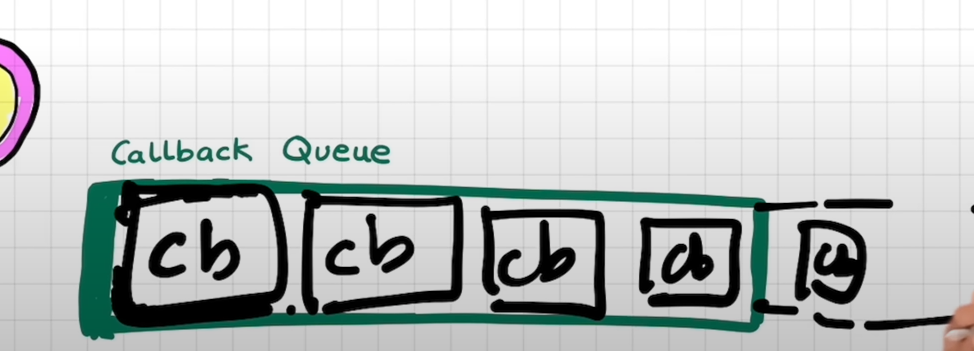 Callback Queue
cb cb cb cb cb